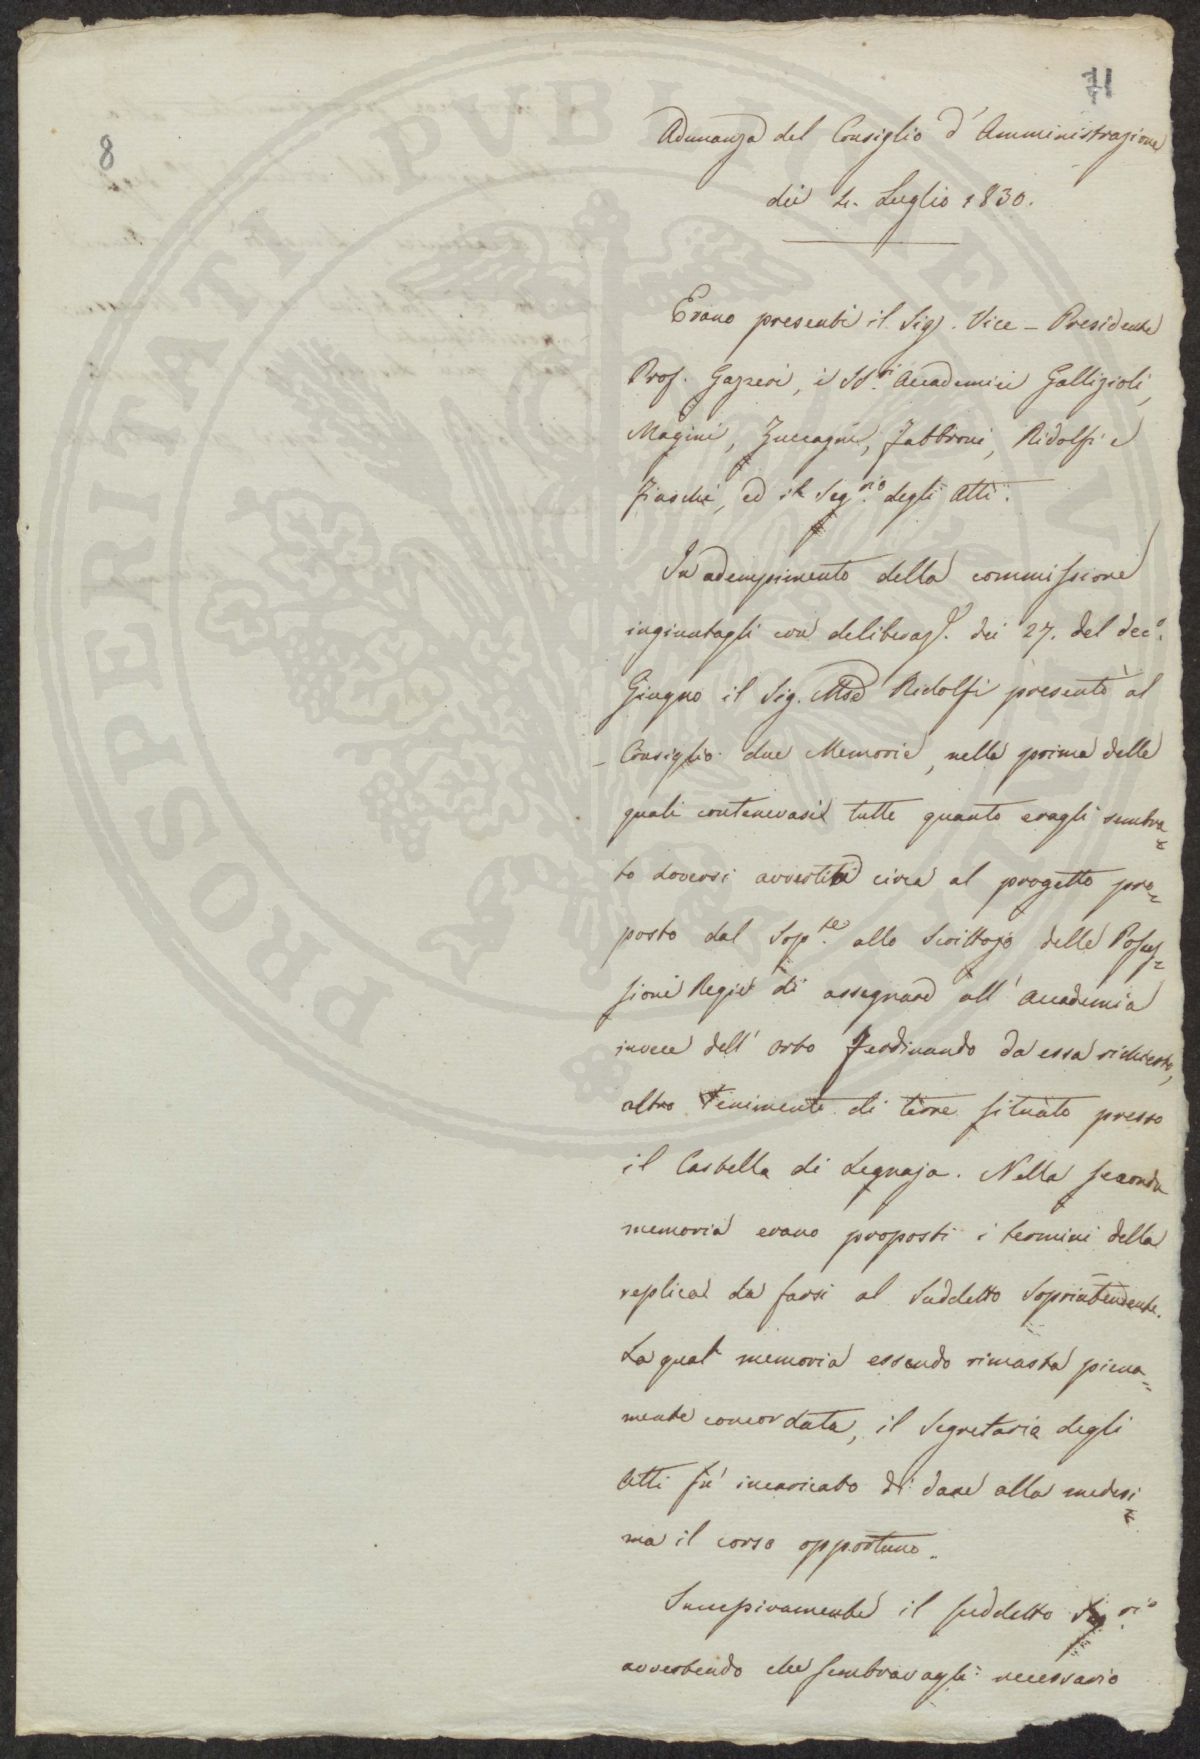 71
8
Adunanza del Consiglio d'Amministrazione
dei 4. Luglio 1830.
Erano presenti il Sig. Vice-Presidente
Prof. Gazzeri, i SS.ri Accademici Gallizioli,
Magini, Zuccagni, Fabbroni, Ridolfi e
Fiaschi, ed il Seg.rio degli Atti.
In adempimento della commissione
ingiuntagli con deliberaz.e dei 27. del dec.o
Giugno il Sig. Mse Ridolfi presentò al
Consiglio due Memorie, nella prima delle
quali contenevasi tutte quanto eragli sembra=
to doversi avvertire circa al progetto pro=
posto dal Sop.te allo Scrittojo delle Posses=
sioni Regie di assegnare all'Accademia
invece dell'Orto Ferdinando da essa richiesto,
altro Tenimento di terre situato presso
il Castello di Legnaja. Nella seconda
memoria erano proposti i termini della
replica da farsi al suddetto Soprintendente.
La qual memoria essendo rimasta piena=
mente concordata, il Segretario degli
Atti fu' incaricato di dare alla medesi=
ma il corso opportuno.
Successivamente il suddetto Seg.rio
avvertendo che sembravagli necessario
PROSPERITATI PVBLICAE AVGENDAE